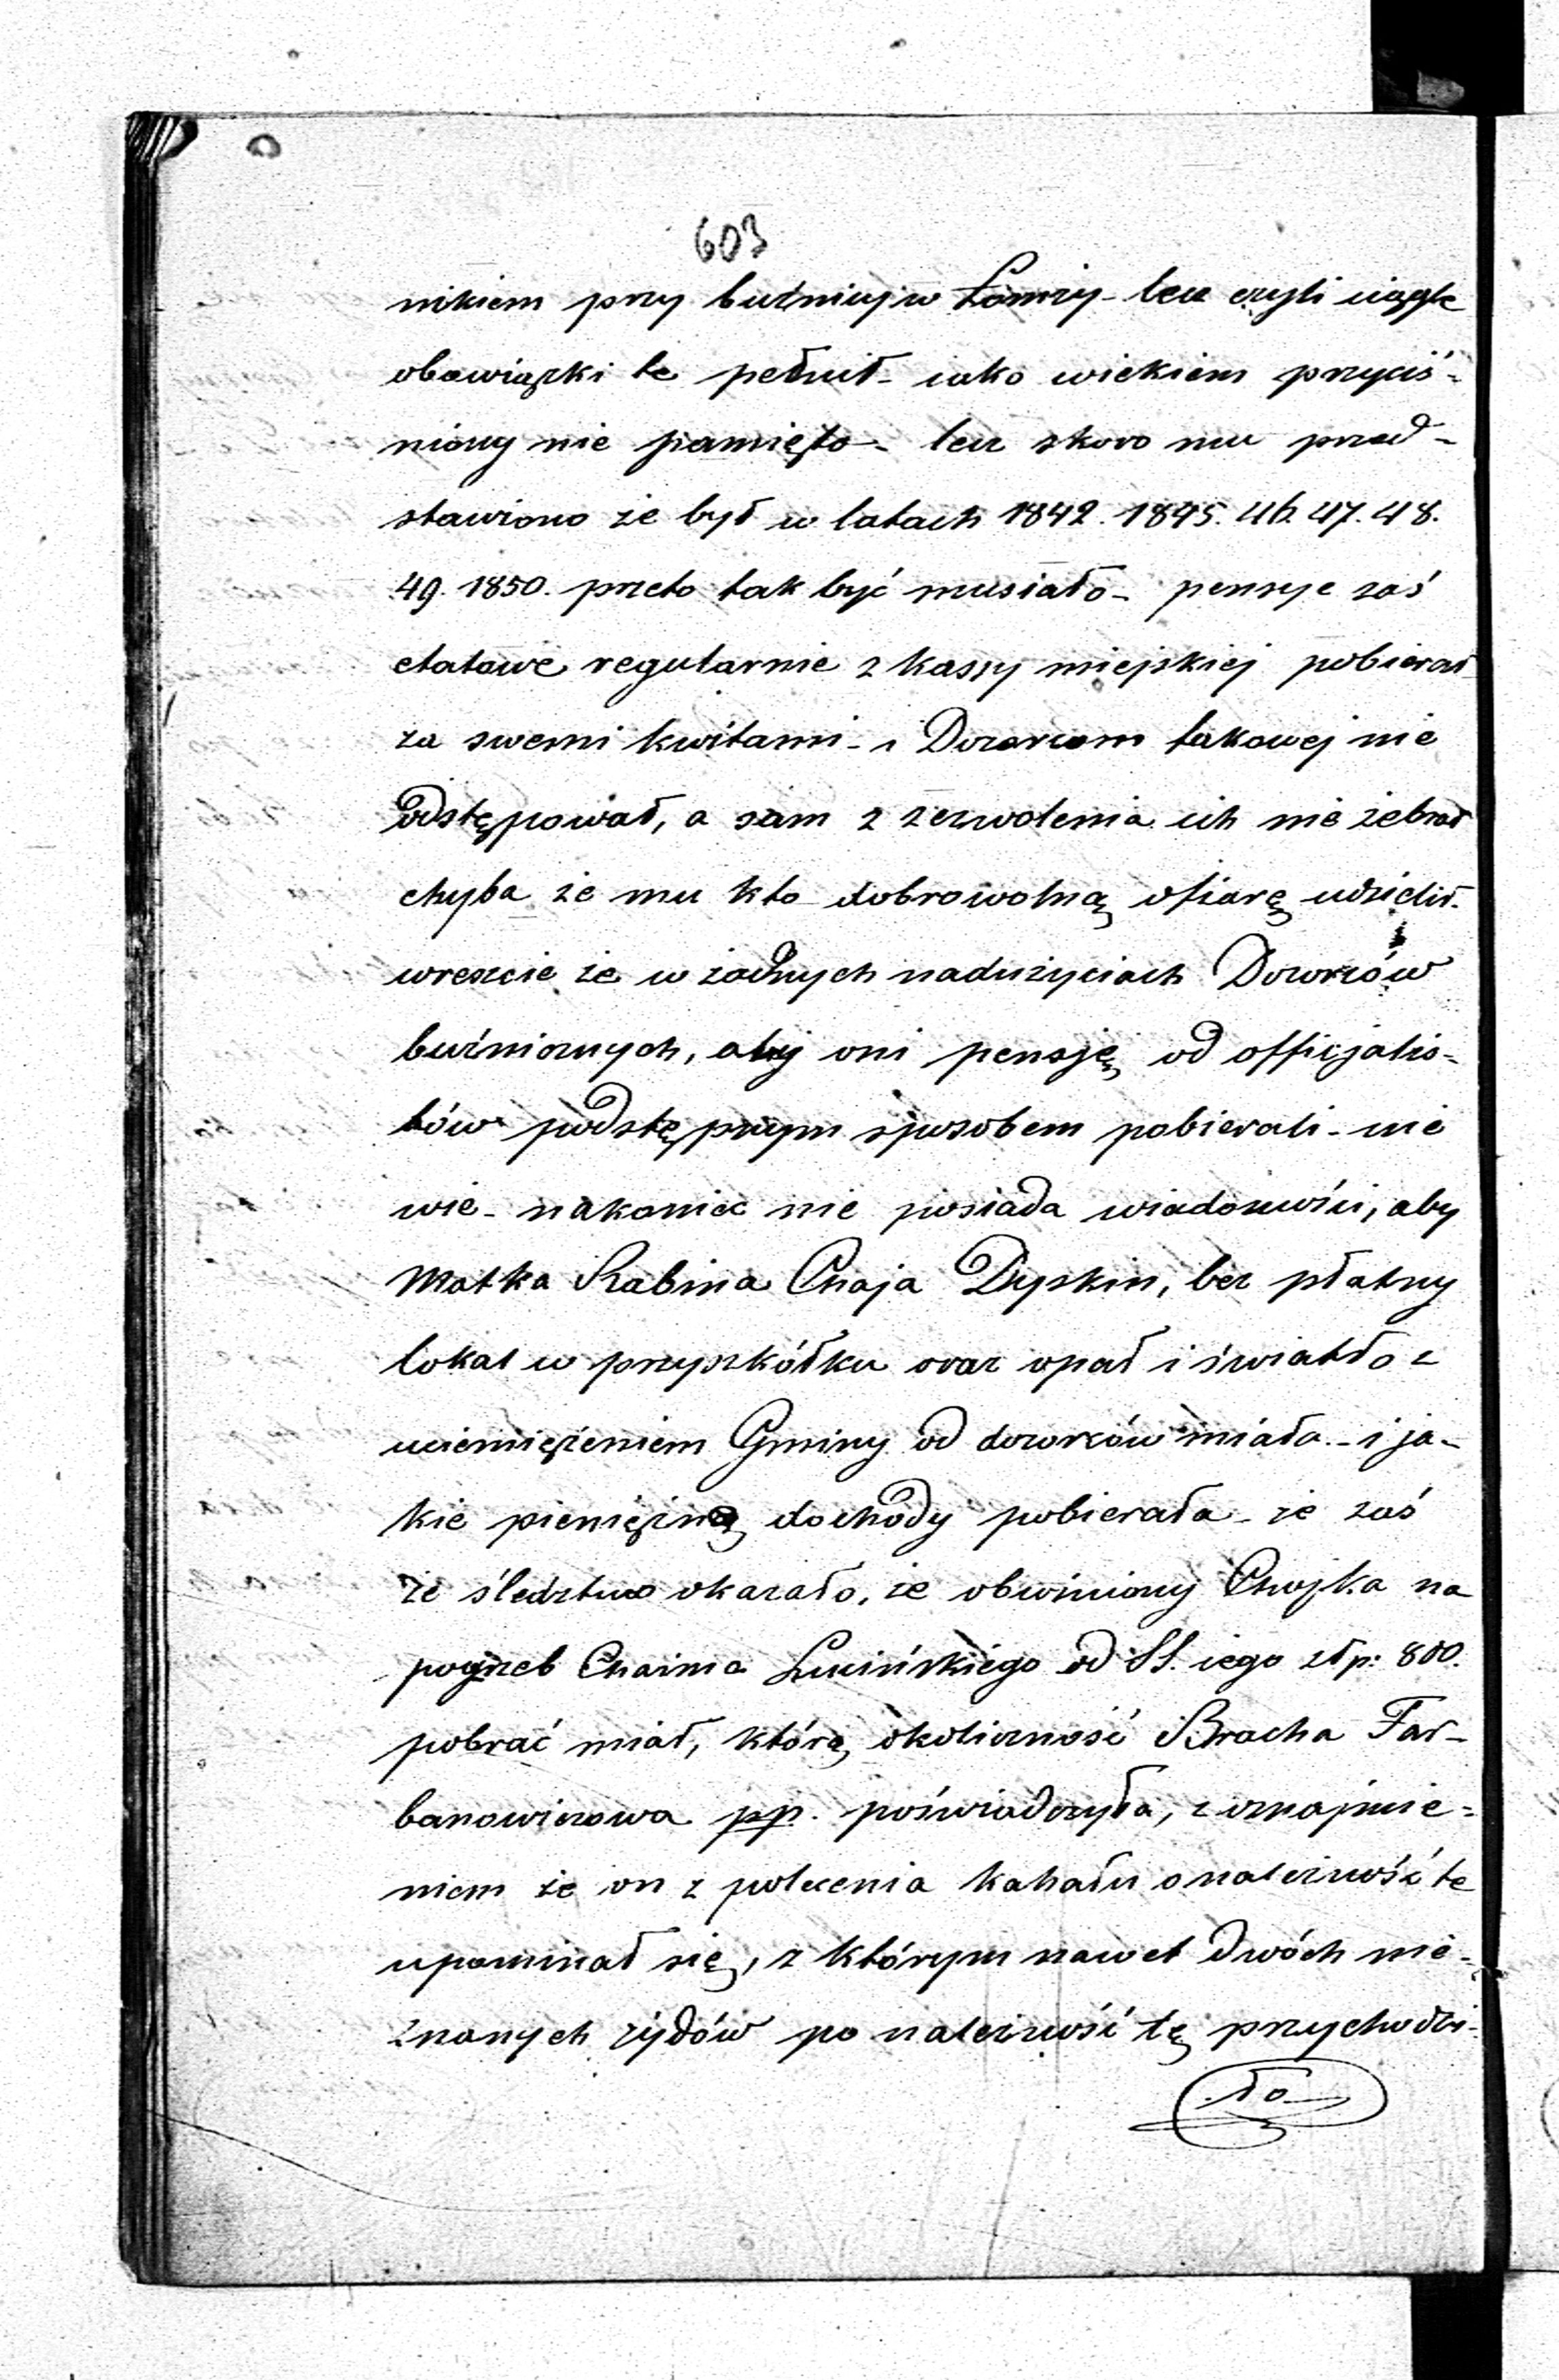 603
nikiem przy bużnicy w Łomży – lecz czyli ciągle
obowiązki te pełnił – iako wiekiem przyciś-
niony nie pamięta – lecz skoro mu przed-
stawiono że był w latach 1842. 1845. 46. 47. 48.
49. 1850. przeto tak być musiało – pensye zaś
etatowe regularnie z kassy miejskiej pobierał
za swemi kwitami – i Dozorcom takowej nie
odstępował, a sam z zezwolenia ich nie żebrał
chyba że mu kto dobrowolną ofiarę udzielił.
wreszcie że w żadnych nadużyciach Dozorców
bużnicznych, aby oni pensję od officjalis-
tów podstępnym sposobem pobierali – nie
wie – nakoniec nie posiada wiadomości, aby
Matka Rabina Chaja Dyskin, bez płatny
lokal w przyszkółku oraz opał i światło z
uciemiężeniem Gminy od dozorców miała – i ja-
kie pieniężne dochody pobierała – że zaś
że śledztwo okazało, że obwiniony Chojka na
pogrzeb Chaima Lucińskiego od SS. iego złp: 800.
pobrać miał, którą okoliczność Bracha Far-
banowiczowa pp. poświadczyła, z oznajmie-
niem że on z polecenia kahału o należność tę
upominał się, z którym nawet dwóch nie-
znanych żydów po należność tę przychodzi-
ło